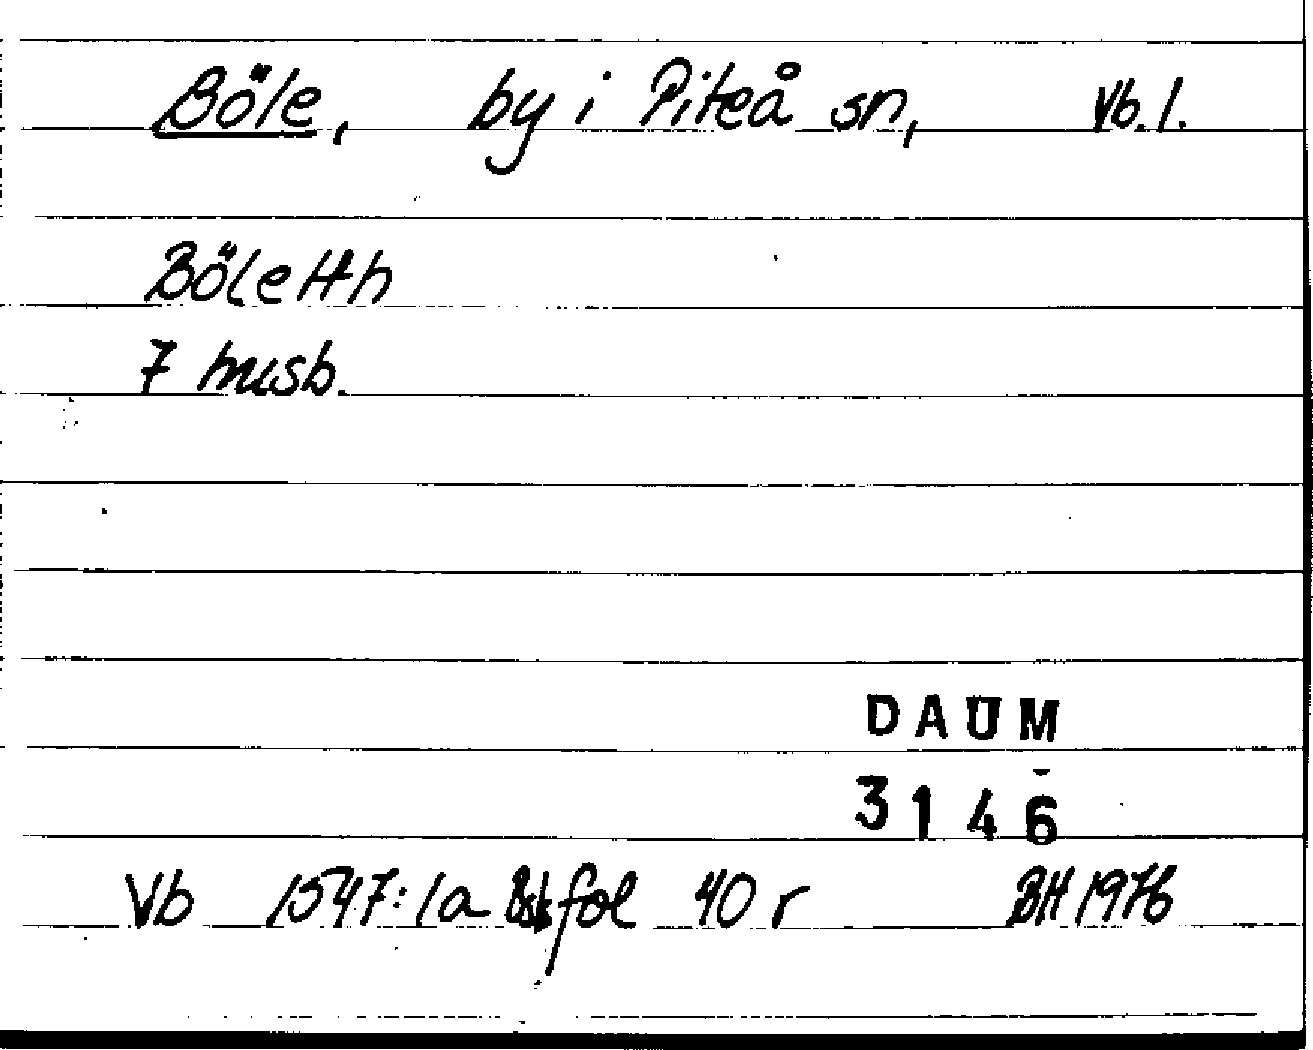 Böle, by i Piteå sn, Vb. l.
Böletth
7 husb.
DAUM
3146
Vb 1547:1a fol 40 r BH 1976